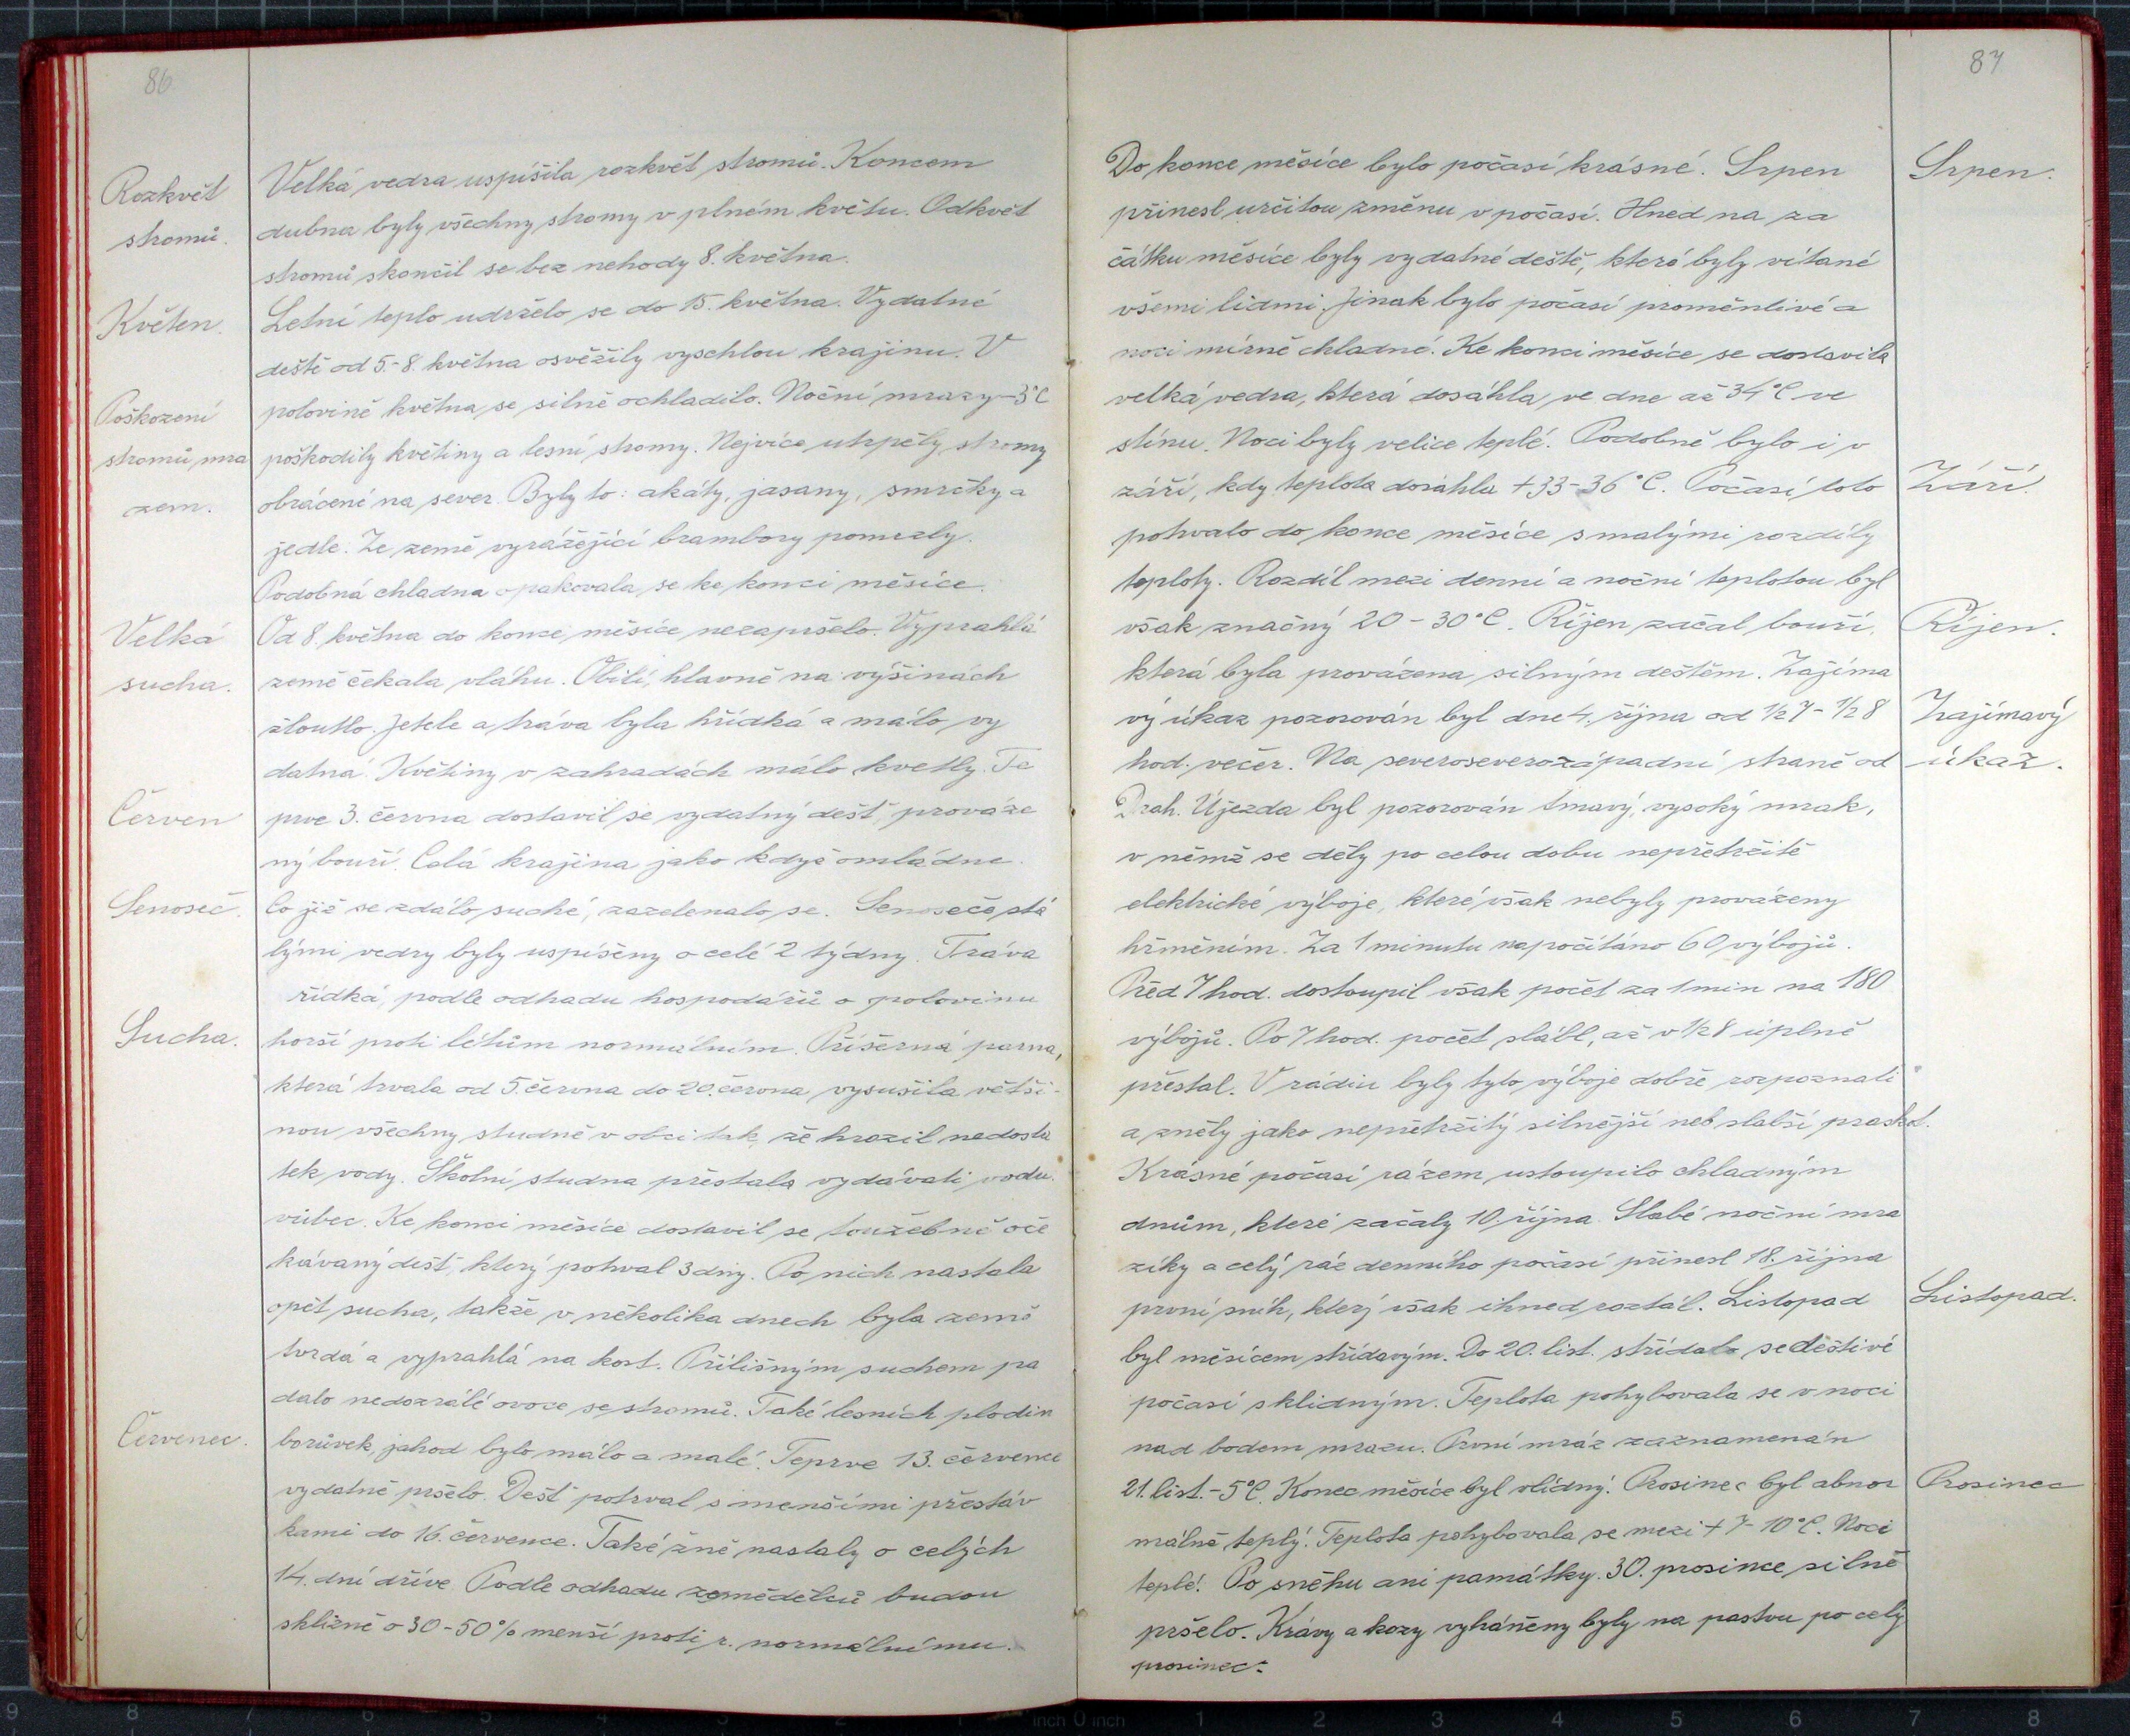 86
Rozkvět
stromů.
Květen.
Poškození
stromů mra
zem.
Velká
sucha.
Červen
Senoseč.
Sucha.
Červenec.
Velká vedra uspíšila rozkvět stromů. Koncem
dubna byly všechny stromy v plném květu. Odkvět
stromů skončil se bez nehody 8. května.
Letní teplo udrželo se do 15. května. Vydatné
deště od 5.-8. května osvěžily vyschlou krajinu. V
polovině května se silně ochladilo. Noční mrazy -3°C
poškodily květiny a lesní stromy. Nejvíce utrpěly stromy
obrácené na sever. Byly to: akáty, jasany, smrčky a
jedle. Ze země vyrážející brambory pomrzly.
Podobná chladna opakovala se ke konci měsíce.
Od 8. května do konce měsíce nezapršelo. Vyprahlá
země čekala vláhu. Obilí, hlavně na výšinách
žloutlo. Jetele a tráva byla hřídká a málo vy
datná. Květiny v zahradách málo kvetly. Te
prve 3. června dostavil se vydatný dešť, prováze
ný bouří. Celá krajina jako když omládne.
Co již se zdálo suché, zazelenalo se. Senoseče stá
lými vedry byly uspíšeny o celé 2 týdny. Tráva
řídká, podle odhadu hospodářů o polovinu
horší proti létům normálním. Příšerná parna,
která trvala od 5. června do 20. června vysušila větši-
nou všechny studně v obci tak, že hrozil nedosta
tek vody. Školní studna přestala vydávati vodu
vůbec. Ke konci měsíce dostavil se toužebně oče
kávaný dešť, který potrval 3 dny. Po nich nastala
opět sucha, takže v několika dnech byla země
tvrdá a vyprahlá na kost. Přílišným suchem pa
dalo nedozrálé ovoce se stromů. Také lesních plodin
borůvek, jahod bylo málo a malé. Teprve 13. července
vydatně pršelo. Dešť potrval s menšími přestáv
kami do 16. července. Také žně nastaly o celých
14. dní dříve. Podle odhadu zemědělců budou
sklizně o 30-50% menší proti r. normálnímu.
87
Do konce měsíce bylo počasí krásné. Srpen
přinesl určitou změnu v počasí. Hned na za
čátku měsíce byly vydatné deště, které byly vítané
všemi lidmi. Jinak bylo počasí proměnlivé a
noci mírně chladné. Ke konci měsíce se dostavila
velká vedra, která dosáhla ve dne až 34°C ve
stínu. Noci byly velice teplé. Podobně bylo i v
září, kdy teplota dosáhla +33-36°C. Počasí toto
potrvalo do konce měsíce s malými rozdíly
teploty. Rozdíl mezi denní a noční teplotou byl
však značný 20-30°C. Říjen začal bouří,
která byla provázena silným deštěm. Zajíma
vý úkaz pozorován byl dne 4. října od ½7-½8
hod. večer. Na severoseverozápadní straně od
Drah. Újezda byl pozorován tmavý, vysoký mrak,
v němž se děly po celou dobu nepřetržitě
elektrické výboje, které však nebyly provázeny
hřměním. Za 1 minutu napočítáno 60 výbojů.
Před 7 hod. dostoupil však počet za 1 min na 180
výbojů. Po 7 hod. počet slábl, až v ½8 úplně
přestal. V rádiu byly tyto výboje dobře rozpoznati
a zněly jako nepřetržitý silnější neb slabší praskot.
Krásné počasí rázem ustoupilo chladným
dnům, které začaly 10. října. Slabé noční mra
zíky a celý ráz denního počasí přinesl 18. října
první sníh, který však ihned roztál. Listopad
byl měsícem střídavým. Do 20. list. střídalo se deštivé
počasí s klidným. Teplota pohybovala se v noci
nad bodem mrazu. První mráz zaznamenán
21. list. -5°C. Konec měsíce byl vlídný. Prosinec byl abnor
málně teplý. Teplota pohybovala se mezi +7-10°C. Noci
teplé. Po sněhu ani památky. 30. prosince silně
pršelo. Krávy a kozy vyháněny byly na pastvu po celý
prosinec.
Srpen.
Září.
Říjen.
Zajímavý
úkaz.
Listopad.
Prosinec